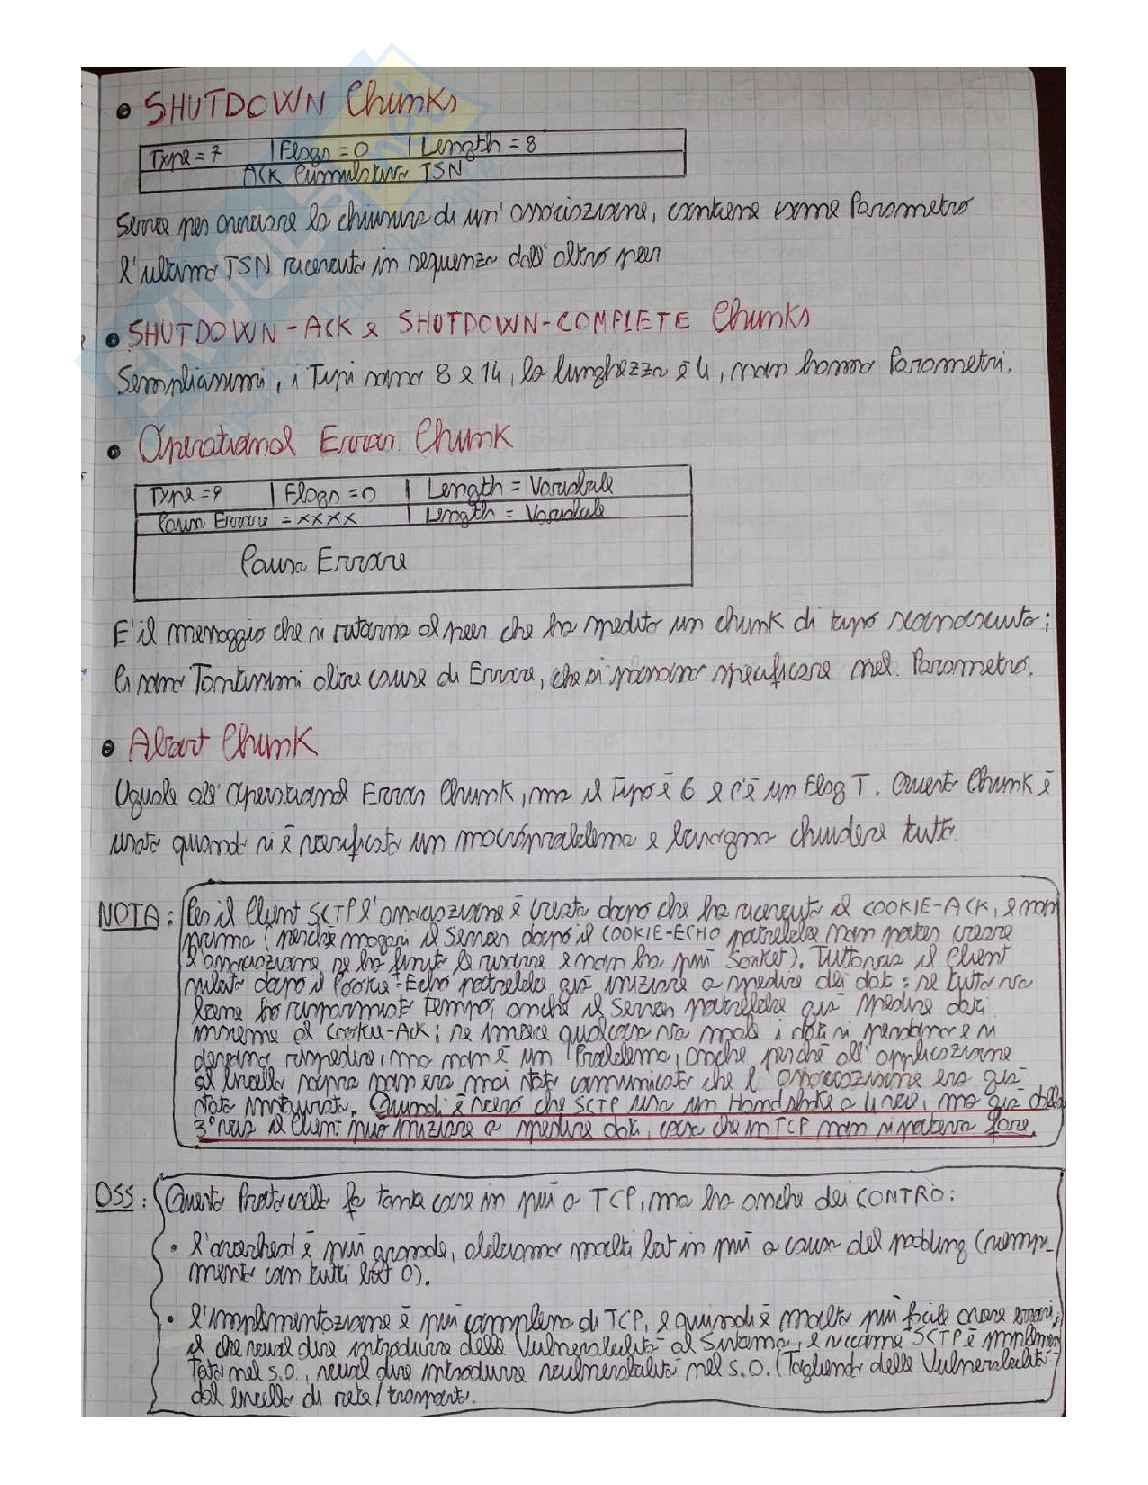 • SHUTDOWN Chunks
Type = 7 | Flags = 0 | Length = 8
ACK Cumulativo TSN
Serve per avviare la chiusura di un' associazione, contiene come Parametro
l'ultimo TSN ricevuto in sequenza dall' altro peer
• SHUTDOWN-ACK e SHUTDOWN-COMPLETE Chunks
Semplicissimi, i Tipi sono 8 e 14, la lunghezza è 4, non hanno Parametri.
• Operational Error Chunk
Type = 9 | Flags = 0 | Length = Variabile
Causa Errore = XXXX | Length = Variabile
Causa Errore
E' il messaggio che si ritorna al peer che ha spedito un chunk di tipo sconosciuto;
Ci sono Tantissimi altre cause di Errore, che si possono specificare nel Parametro.
• Abort Chunk
Uguale all' Operational Error Chunk, ma il Tipo è 6 e c'è un Flag T. Questo Chunk è
usato quando si è verificato un macroproblema e bisogna chiudere tutto.
NOTA: Per il Client SCTP l'associazione è creata dopo che ha ricevuto il COOKIE-ACK, e non
prima; perché magari il Server dopo il COOKIE-ECHO potrebbe non poter creare
l'associazione, se ha finito le risorse e non ha più Socket). Tuttavia il Client
subito dopo il Cookie-Echo potrebbe già iniziare a spedire dei dati: se tutto va
bene ho risparmiato tempo, anche il Server potrebbe già spedire dati
insieme al Cookie-Ack; se invece qualcosa va male i dati si perdono e si
devono rispedire, ma non è un Problema, anche perché all' applicazione
al livello sopra non era mai stato comunicato che l' associazione era già
stata instaurata. Quindi è vero che SCTP usa un Handshake a 4 vie, ma già dalla
3° via il Client può iniziare a spedire dati, cosa che in TCP non si poteva fare.
OSS: Questo Protocollo fa tante cose in più a TCP, ma ha anche dei CONTRO:
• l'overhead è più grande, abbiamo molti bit in più a causa del padding (riempi-
mento con tutti bit 0).
• l'implementazione è più complessa di TCP, e quindi è molto più facile avere errori,
il che vuol dire introdurre delle Vulnerabilità al Sistema, e siccome SCTP è implemen
tato nel S.O., vuol dire introdurre vulnerabilità nel S.O. (Togliendo delle Vulnerabilità
dal livello di rete/trasporto.